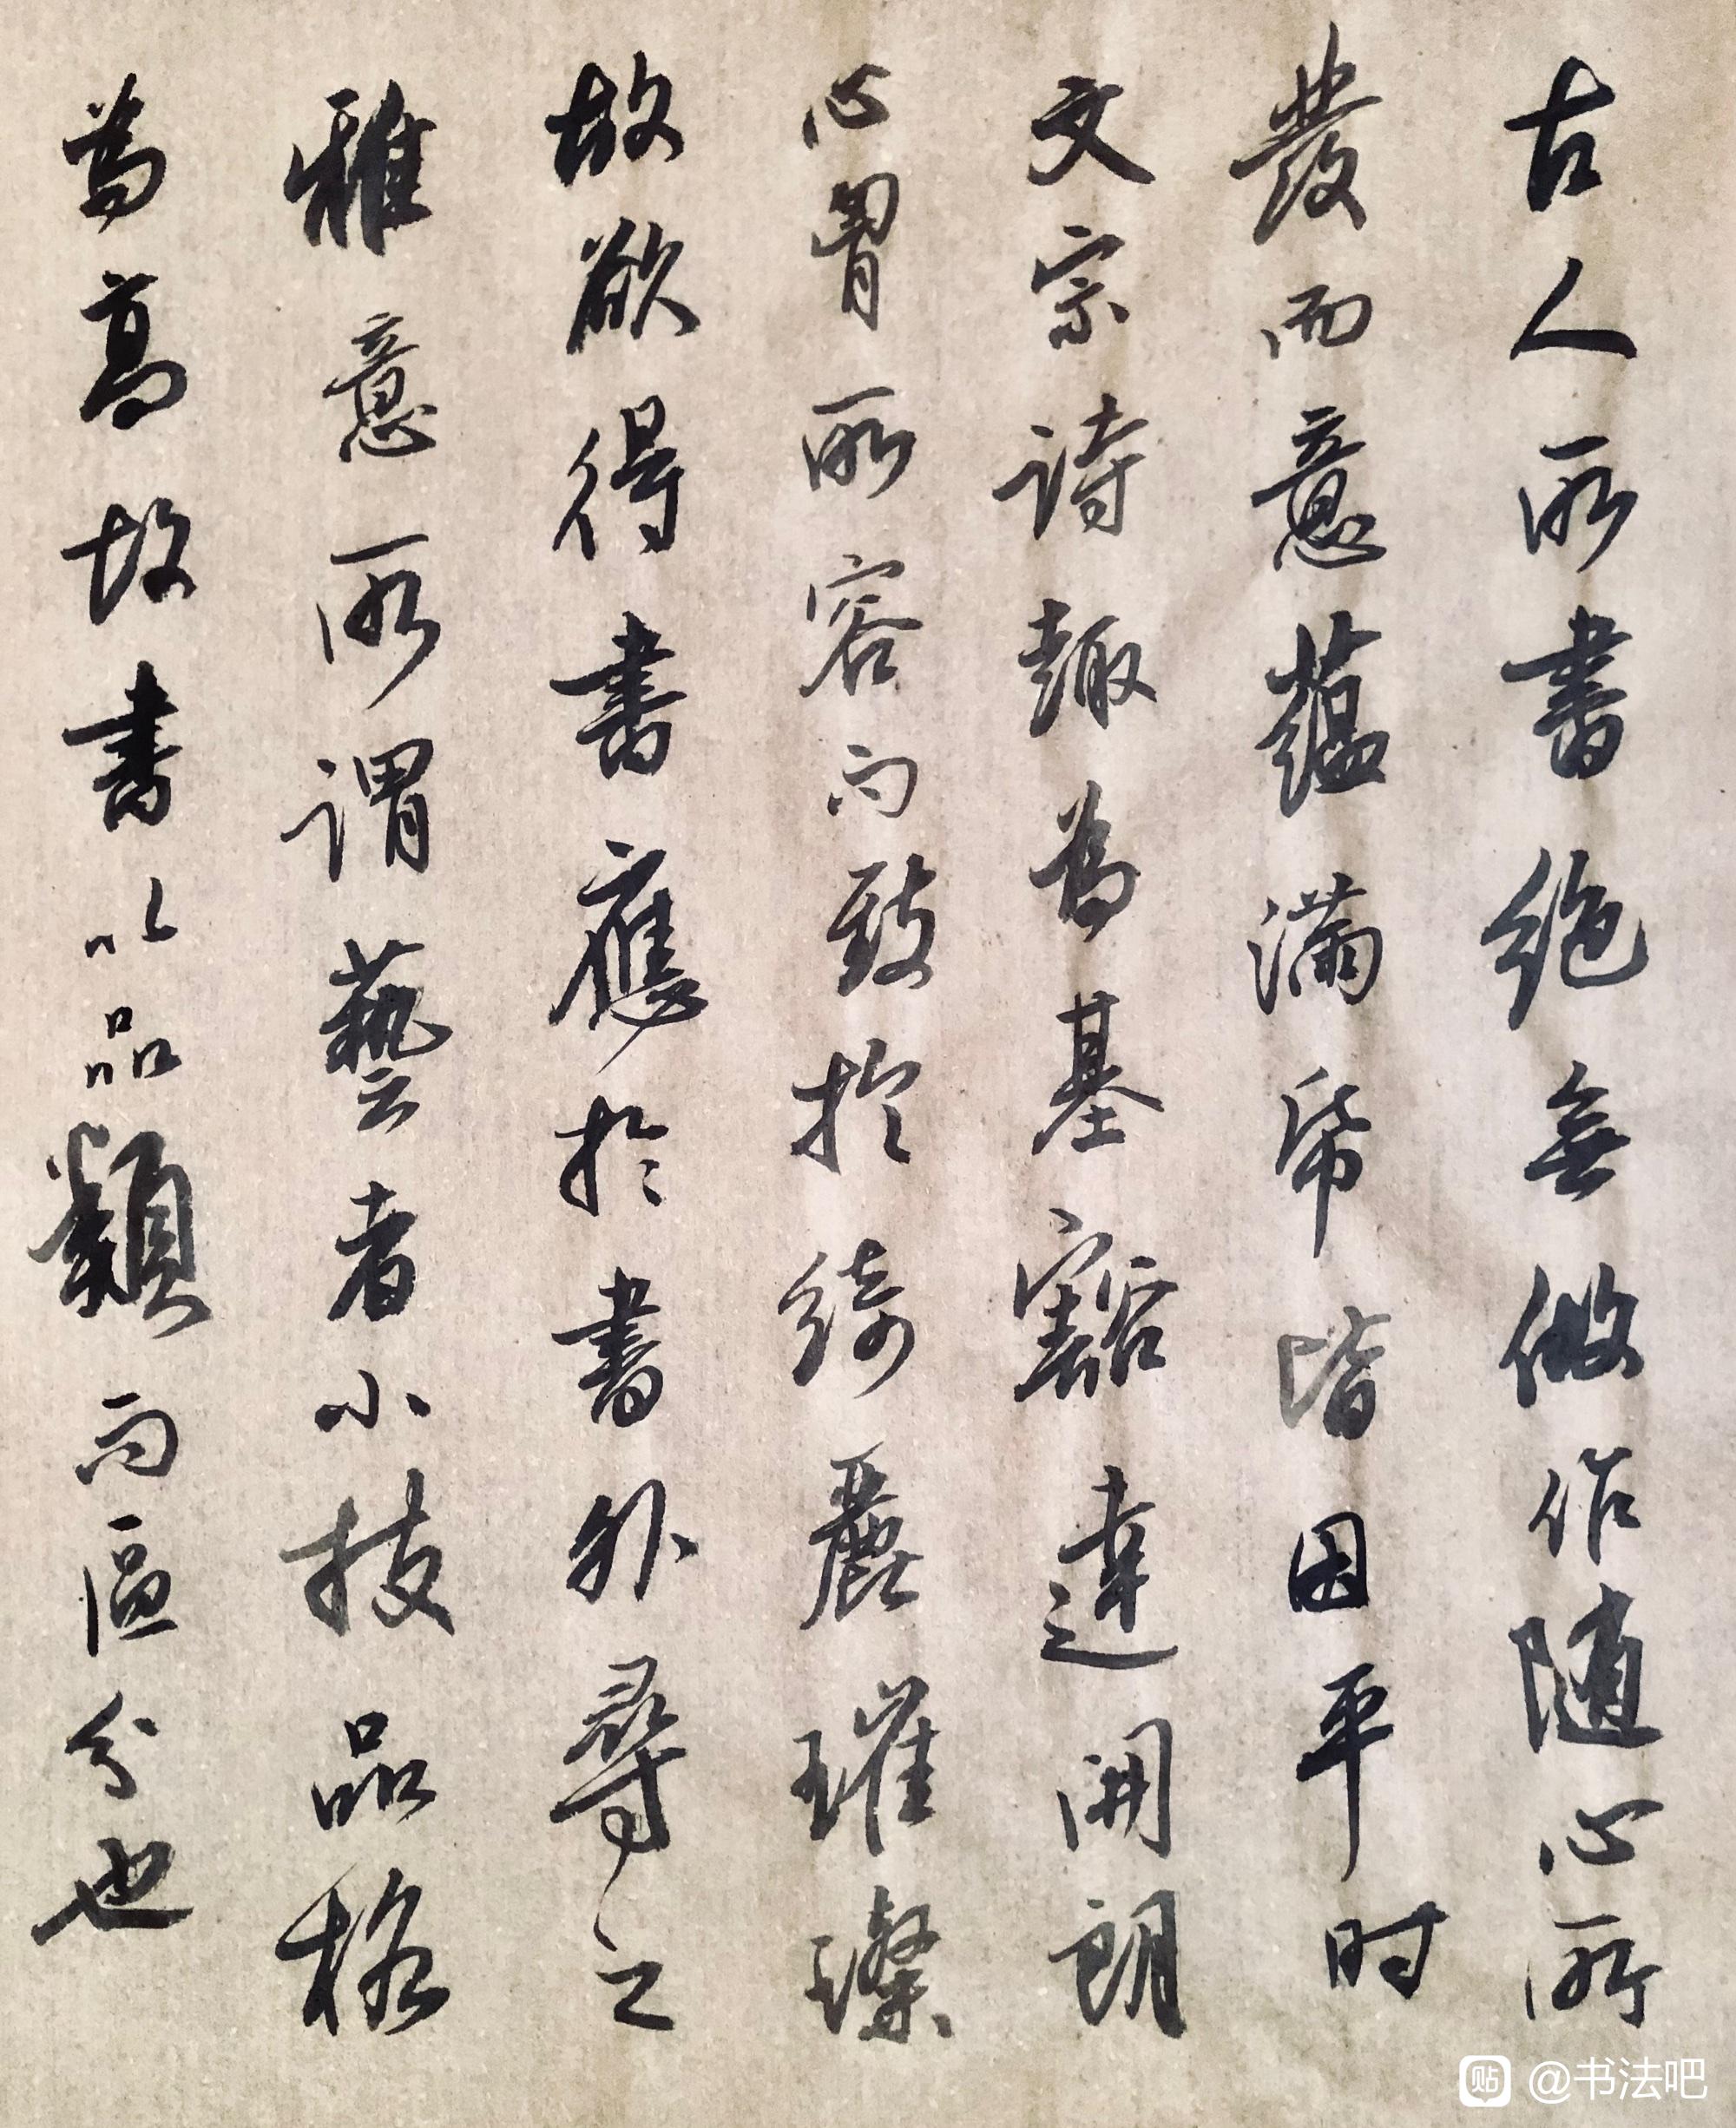 古人所書絶無做作随心所
發而意蘊滿帋皆因平时
文宗詩趣為基豁達開朗
心胃所容而致於綺麗璀璨
故欲得書應於書外尋之
雅意所謂藝者小技品格
為高故書以品類而區分也
贴 @书法吧